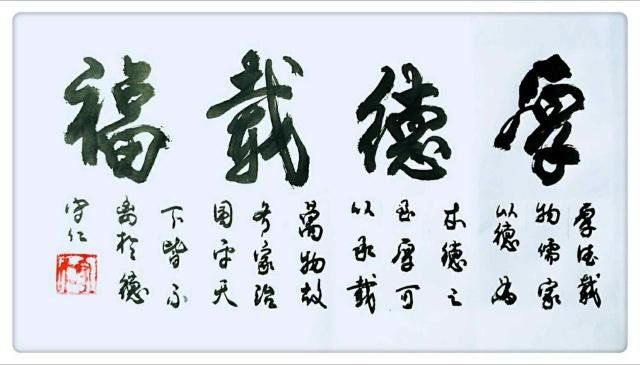 厚德載福
厚德載
物儒家
以德為
本德之
至厚可
以承載
萬物故
齐家治
國平天
下皆不
离於德
守仁